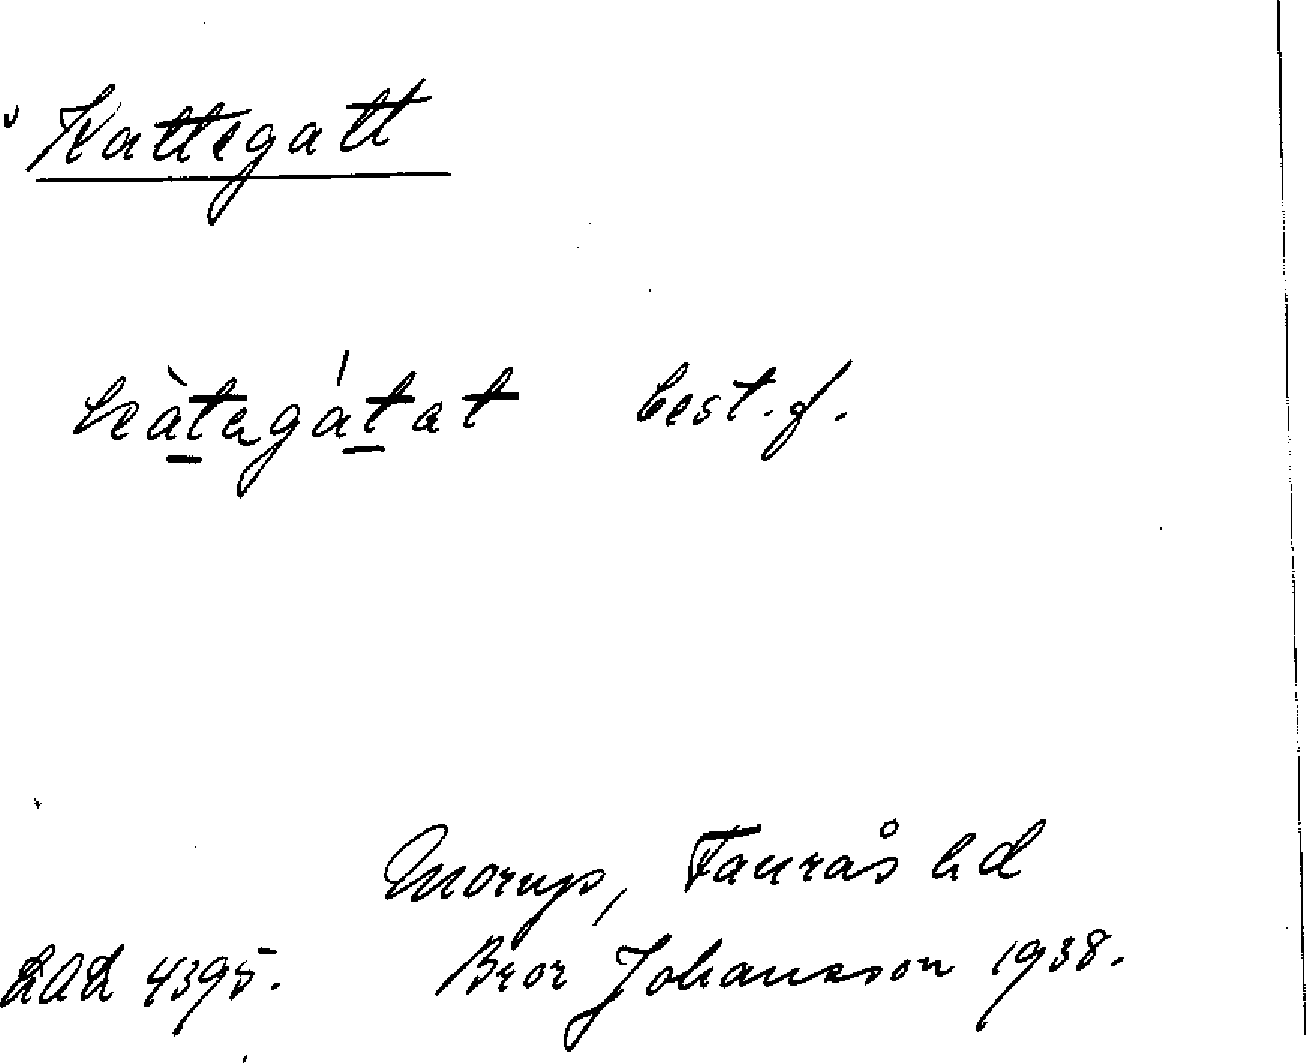 Kattegatt
kàtegátat best. f.
Morup, Faurås hd
LAL 4395. Bror Johansson 1938.